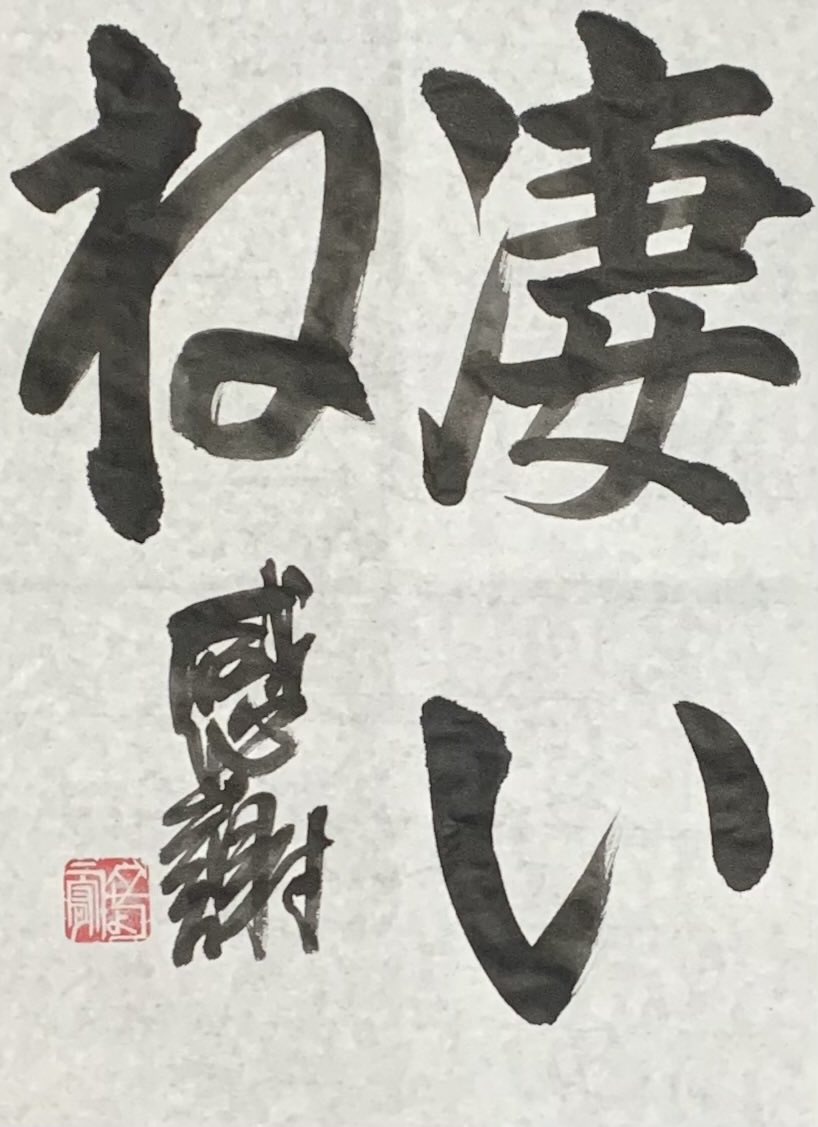 凄い
ね
感謝